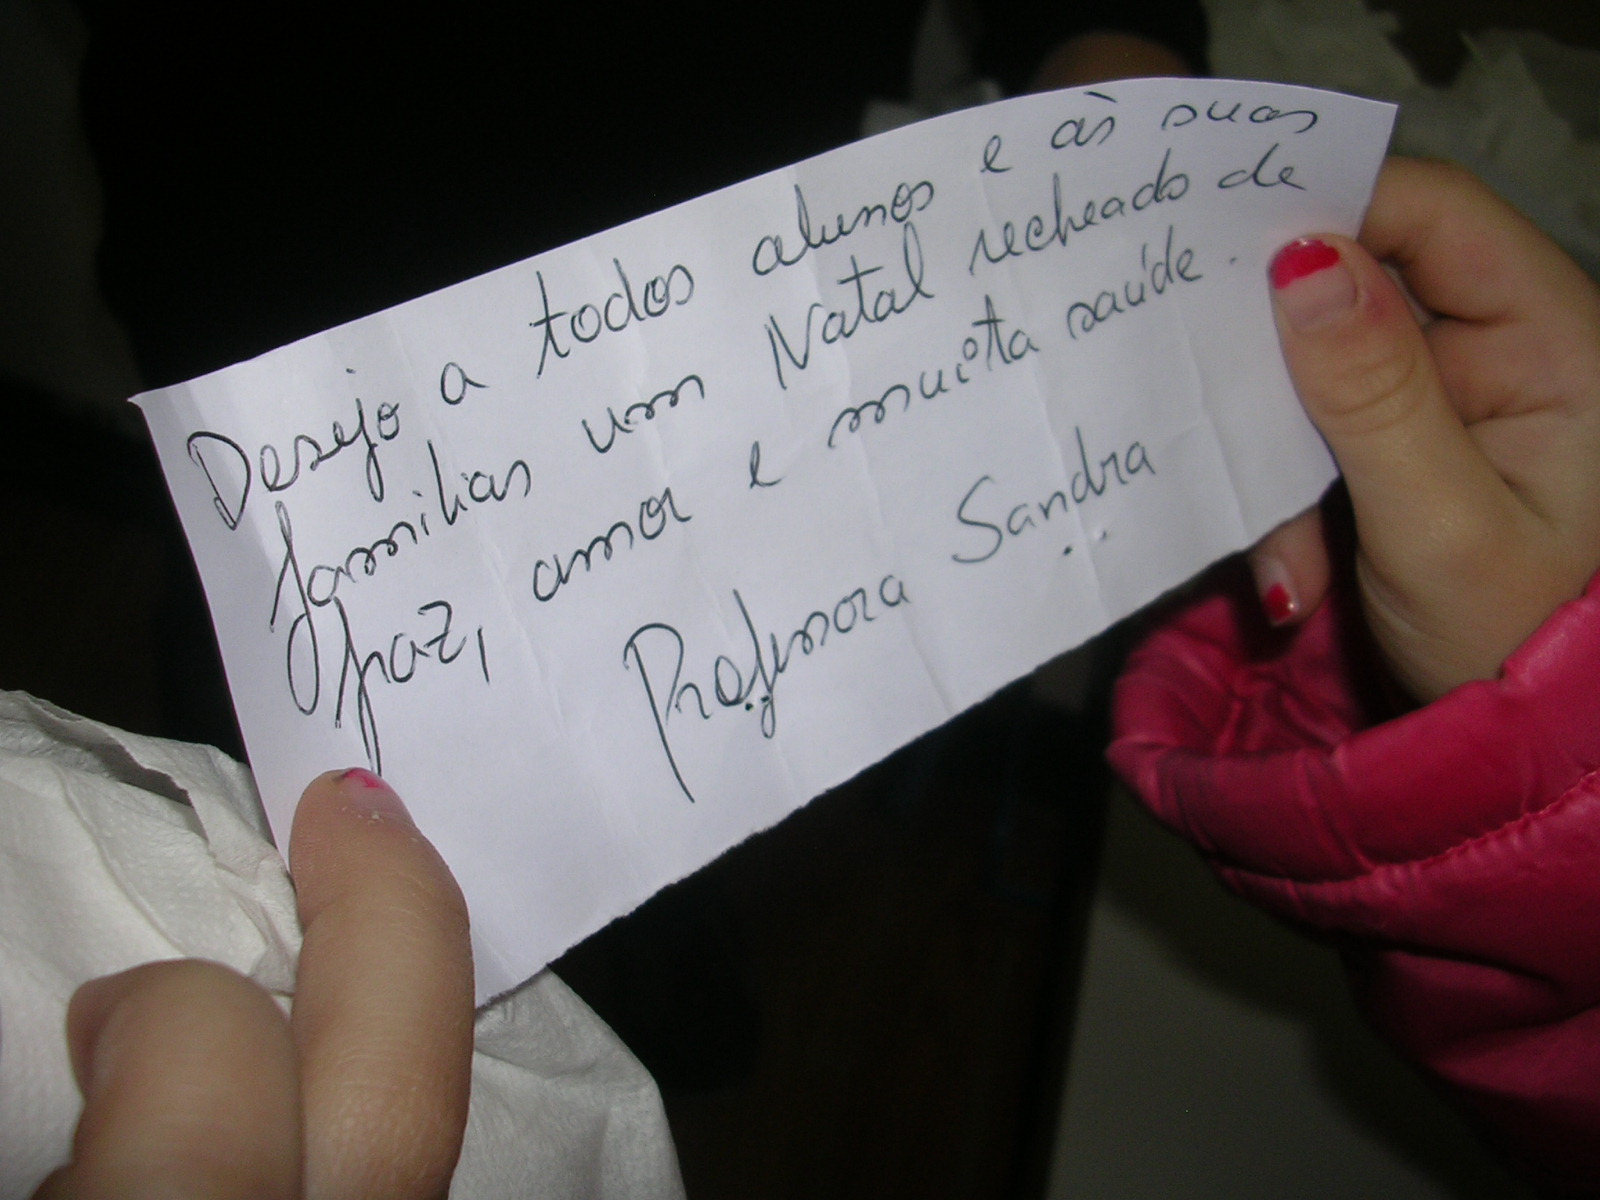 Desejo a todos alunos e às suas
familias um Natal recheado de
paz, amor e muita saúde.
Professora Sandra